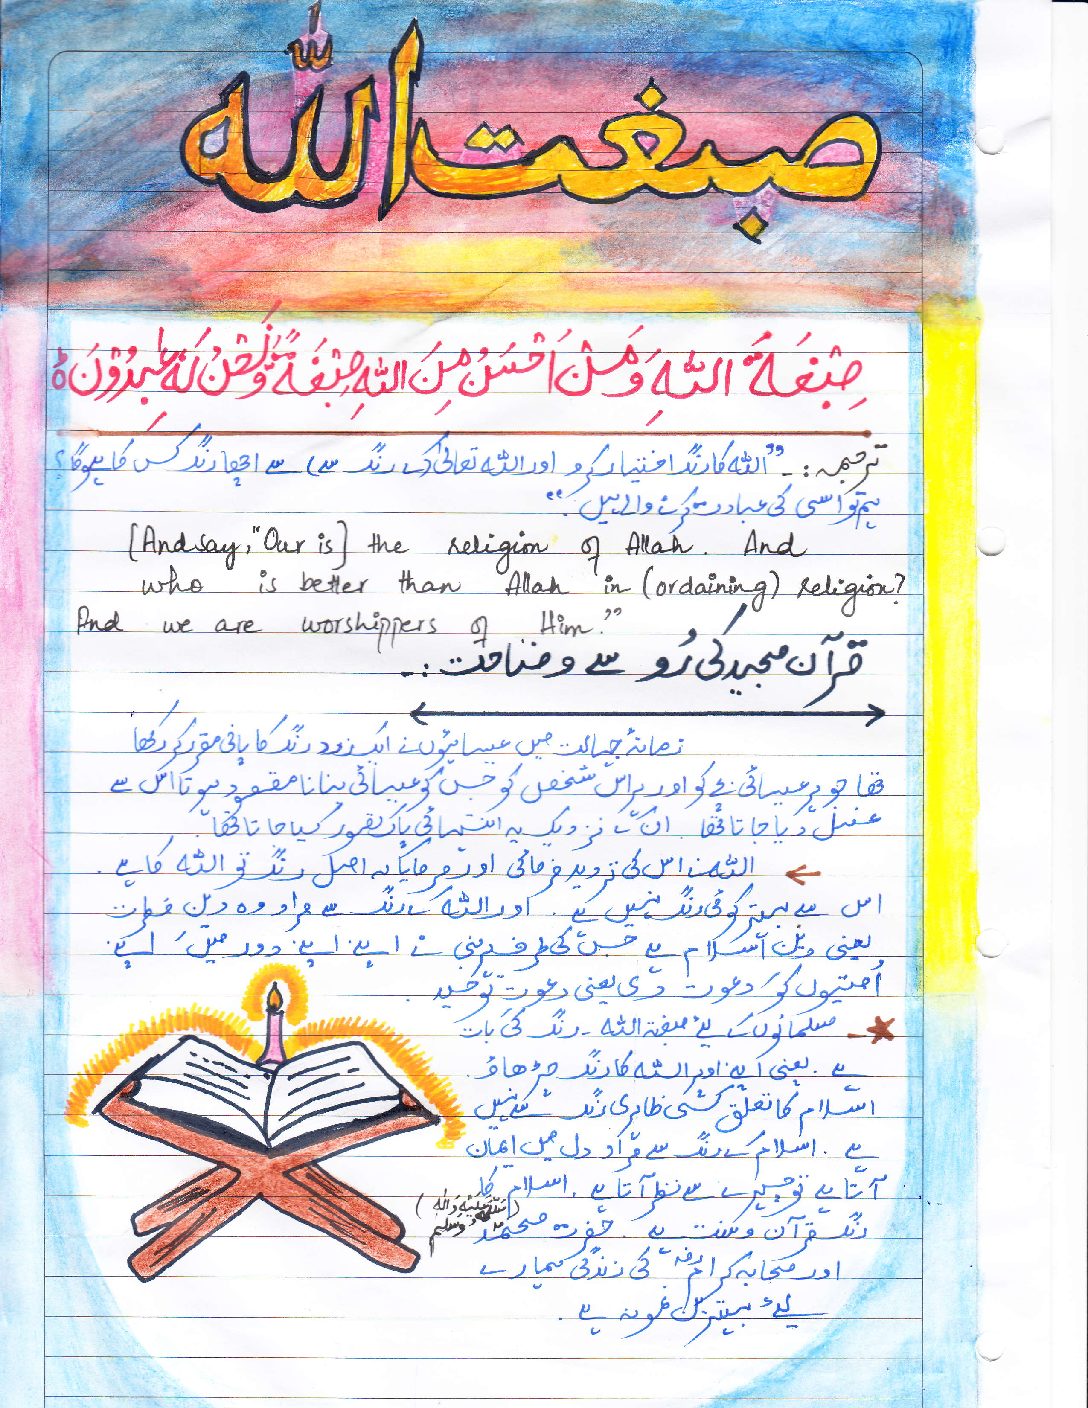 صبغت اللہ
صِبْغَةَ اللّٰهِ وَمَنْ اَحْسَنُ مِنَ اللّٰهِ صِبْغَةً وَّنَحْنُ لَهٗ عٰبِدُوْنَ
ترجمہ:۔ "اللہ کا رنگ اختیار کرو اور اللہ تعالیٰ (کے رنگ سے) سے اچھا رنگ کس کا ہوگا؟
ہم تو اسی کی عبادت کرنے والے ہیں۔"
[And say, "Our is] the religion of Allah. And
who is better than Allah in (ordaining) religion?
And we are worshippers of Him."
قرآن مجید کی رُو سے وضاحت:۔
زمانۂ جہالت میں عیسائیوں نے ایک زرد رنگ کا پانی مقرر کر رکھا
تھا جو ہر عیسائی بچے کو اور ہر اس شخص کو جس کو عیسائی بنانا مقصود ہوتا اس سے
غسل دیا جاتا تھا۔ ان کے نزدیک یہ انتہائی پاک تصور کیا جاتا تھا۔
← اللہ نے اس کی تردید فرمائی اور فرمایا کہ اصل رنگ تو اللہ کا ہے۔
اس سے بہتر کوئی رنگ نہیں ہے۔ اور اللہ کے رنگ سے مراد وہ دین فطرت
یعنی دین اسلام ہے جس کی طرف ہر نبی نے اپنے اپنے دور میں اپنے
اُمتیوں کو دعوت دی یعنی دعوت توحید۔
★ مسلمانوں کے لئے صبغۃ اللہ ۔ رنگ کی بات
ہے۔ یعنی اپنے اوپر اللہ کا رنگ چڑھاؤ۔
اسلام کا تعلق کسی ظاہری رنگ سے نہیں
ہے۔ اسلام کے رنگ سے مراد دل میں ایمان
آتا ہے تو چہرے سے نظر آتا ہے۔ اسلام کا
رنگ قرآن و سنت ہے۔ حضرت محمد (صلی اللہ علیہ وآلہ وسلم)
اور صحابہ کرامؓ کی زندگی ہمارے
لئے بہترین نمونہ ہے۔